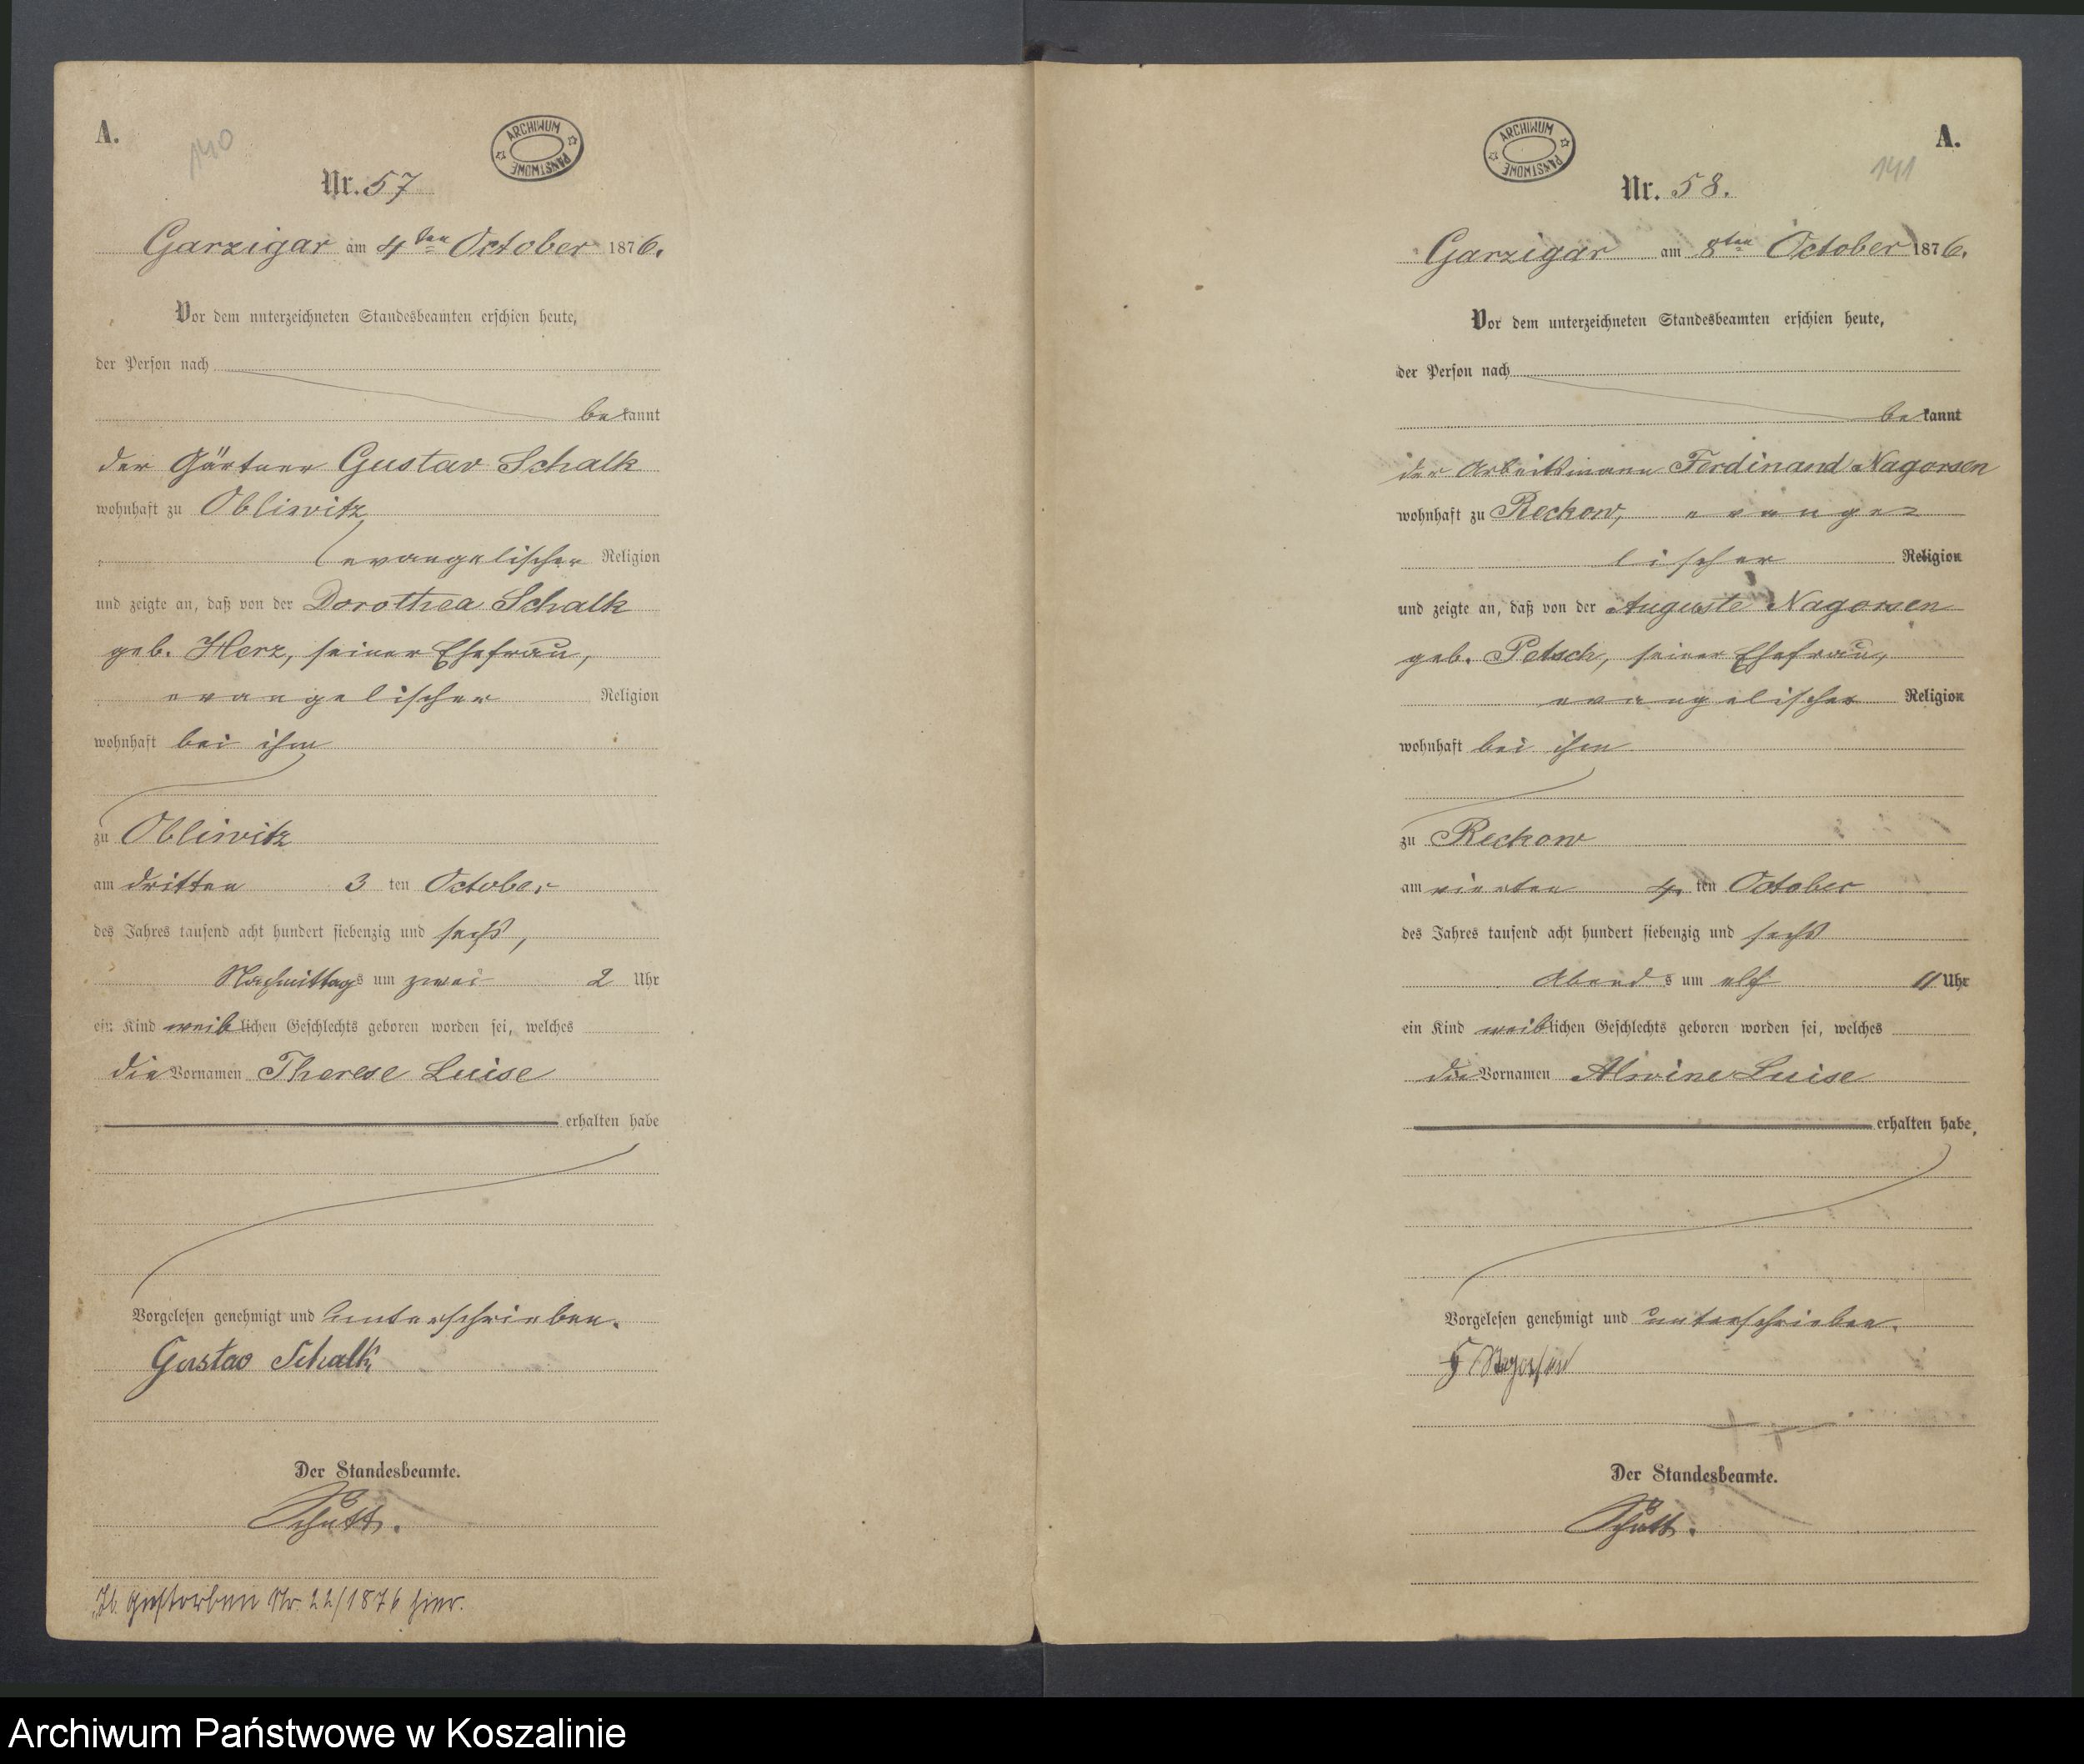 A.
140
ARCHIWUM PAŃSTWOWE
Nr. 57
Garzigar am 4ten October 1876.
Vor dem unterzeichneten Standesbeamten erschien heute,
der Person nach
bekannt
der Gärtner Gustav Schalk
wohnhaft zu Obliwitz
evangelischer Religion
und zeigte an, daß von der Dorothea Schalk
geb. Herz, seiner Ehefrau,
evangelischer Religion
wohnhaft bei ihm
zu Obliwitz
am dritten 3 ten October
des Jahres tausend acht hundert siebenzig und sechs,
Nachmittags um zwei 2 Uhr
ein Kind weiblichen Geschlechts geboren worden sei, welches
die Vornamen Therese Luise
erhalten habe
Vorgelesen genehmigt und unterschrieben.
Gustav Schalk
Der Standesbeamte.
Schütt.
gestorben Nr. 22/1876 hier.
A.
141
ARCHIWUM PAŃSTWOWE
Nr. 58.
Garzigar am 8ten October 1876.
Vor dem unterzeichneten Standesbeamten erschien heute,
der Person nach
bekannt
der Arbeitsmann Ferdinand Nagorsen
wohnhaft zu Reckow, evange-
lischer Religion
und zeigte an, daß von der Auguste Nagorsen
geb. Petsch, seiner Ehefrau,
evangelischer Religion
wohnhaft bei ihm
zu Reckow
am vierten 4. ten October
des Jahres tausend acht hundert siebenzig und sechs
Abends um elf 11 Uhr
ein Kind weiblichen Geschlechts geboren worden sei, welches
die Vornamen Alwine Luise
erhalten habe.
Vorgelesen genehmigt und unterschrieben.
F Nagorsen
Der Standesbeamte.
Schütt.
Archiwum Państwowe w Koszalinie